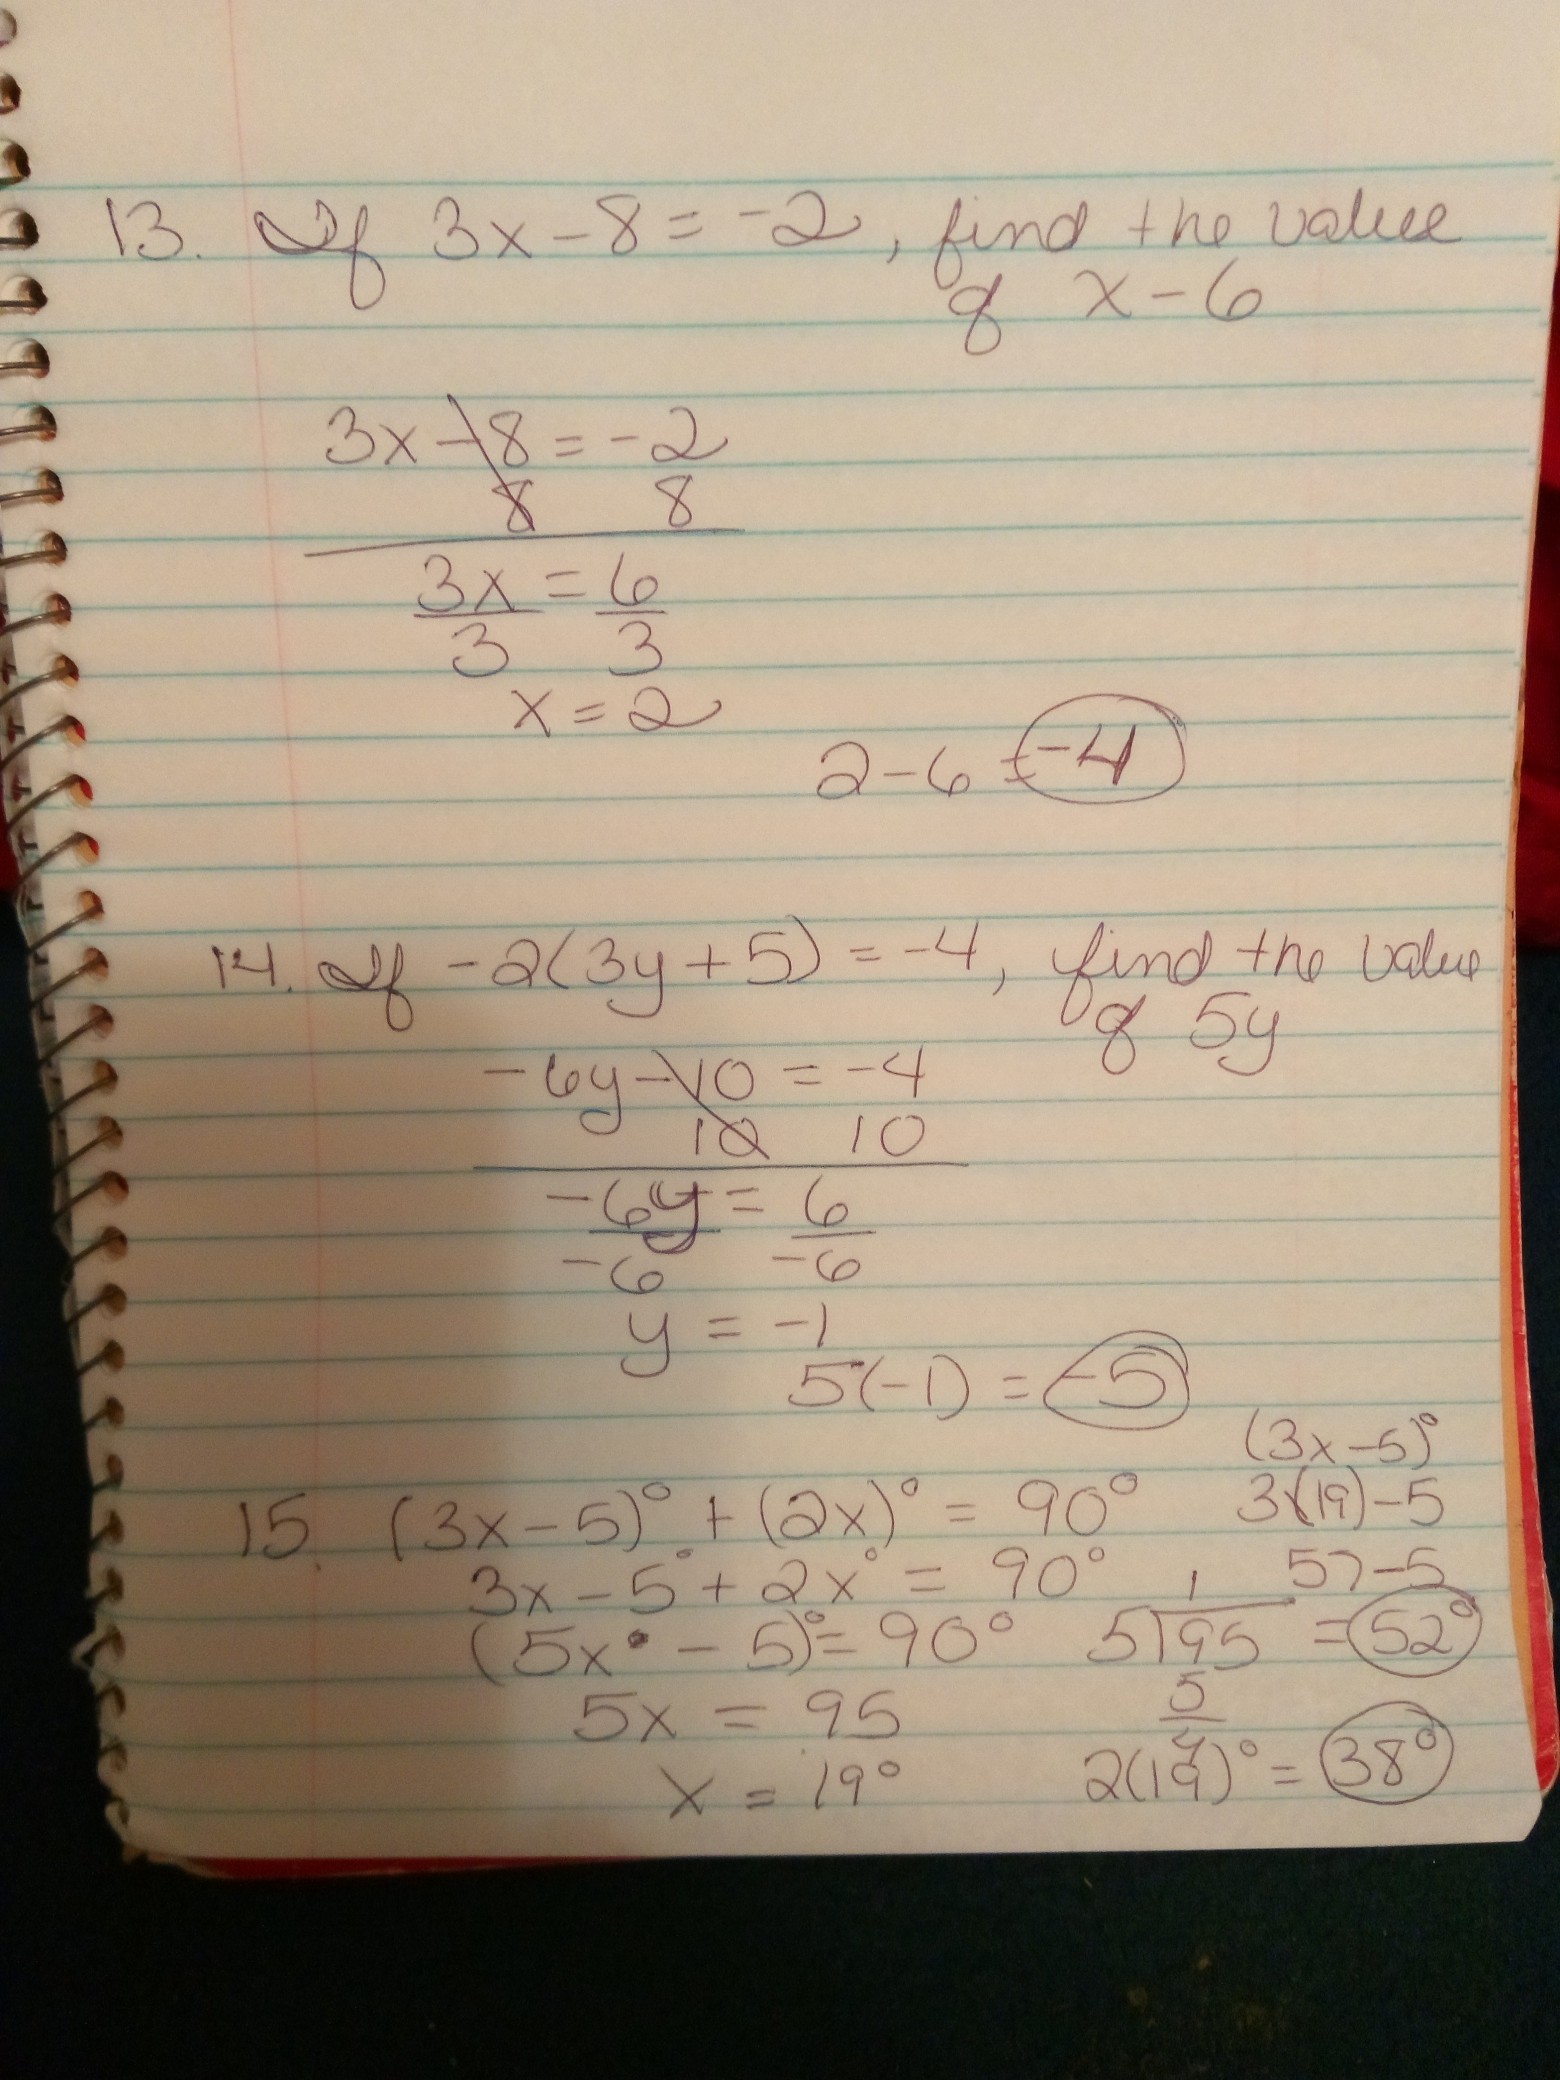 13. If 3x - 8 = -2, find the value
of x - 6
3x - 8 = -2
8 8
3x = 6
3 3
x = 2
2 - 6 = -4
14. If -2(3y + 5) = -4, find the value
of 5y
-6y - 10 = -4
10 10
-6y = 6
-6 -6
y = -1
5(-1) = -5
(3x - 5)°
15. (3x - 5)° + (2x)° = 90° 3(19) - 5
3x - 5° + 2x° = 90° 57 - 5
1
(5x° - 5)° = 90° 5)95 = 52°
5
5x = 95
4
x = 19° 2(19)° = 38°